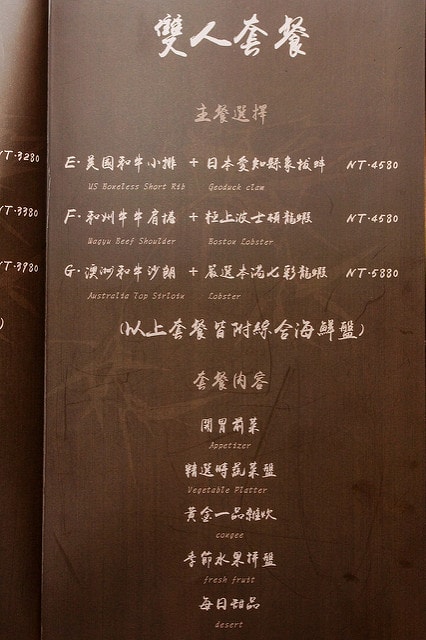 雙人套餐
主餐選擇
NT·3280
E·美國和牛小排 + 日本愛知縣象拔蚌 NT·4580
US Boneless Short Rib Geoduck claw
NT·3380
F·和州牛牛肩 + 極上波士頓龍蝦 NT·4580
Wagyu Beef Shoulder Boston Lobster
NT·3980
G·澳洲和牛沙朗 + 嚴選本港七彩龍蝦 NT·5880
Australia Top Sirloin Lobster
(以上套餐皆附綜合海鮮盤)
套餐內容
開胃前菜
Appetizer
精選時蔬菜盤
Vegetable Platter
黃金一品雜炊
congee
季節水果拼盤
fresh fruit
每日甜品
desert